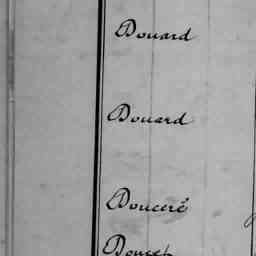 Douard
Douard
Douceré
Doucet